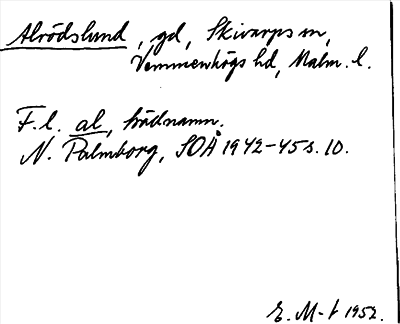 Alrödslund, gd, Skivarps sn,
Vemmenhögs hd, Malm. l.
F.l. al, trädnamn.
N. Palmborg, SOÅ 1942-45 s. 10.
E. M-t 1952.